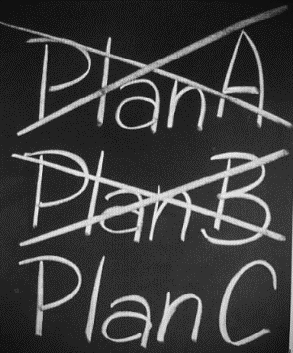 Plan A
Plan B
Plan C